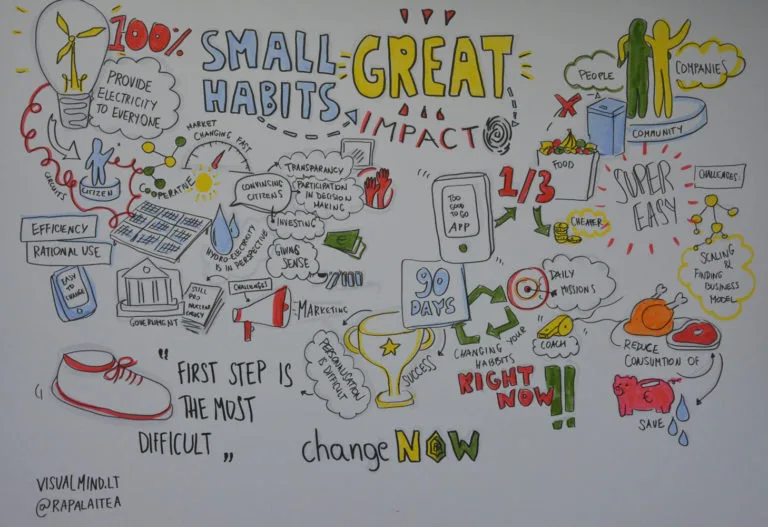 100%
SMALL
HABITS
GREAT
IMPACT
PROVIDE
ELECTRICITY
TO EVERYONE
PEOPLE
COMPANIES
COMMUNITY
MARKET
CHANGING FAST
CIRCUITS
CITIZEN
COOPERATIVE
TRANSPARANCY
CONVINCING
CITIZENS
PARTICIPATION
IN DECISION
MAKING
INVESTING
GIVING
SENSE
HYDRO-ELECTRICITY
IS IN PERSPECTIVE
EFFICIENCY
RATIONAL USE
EASY
TO
CHANGE
GOVERNMENT
STILL
PRO
NUCLEAR
ENERGY
CHALLENGES
MARKETING
TOO
GOOD
TO GO
APP
1/3
FOOD
CHEAPER
SUPER
EASY
CHALLENGES:
SCALING
&
FINDING
BUSINESS
MODEL
90
DAYS
DAILY
MISSIONS
COACH
CHANGING YOUR
HABBITS
RIGHT
NOW!!
REDUCE
CONSUMTION OF
SAVE
PERSONALISATION
IS DIFFICULT
SUCCESS
"FIRST STEP IS
THE MOST
DIFFICULT"
changeNOW
VISUALMIND.LT
@RAPALAITEA